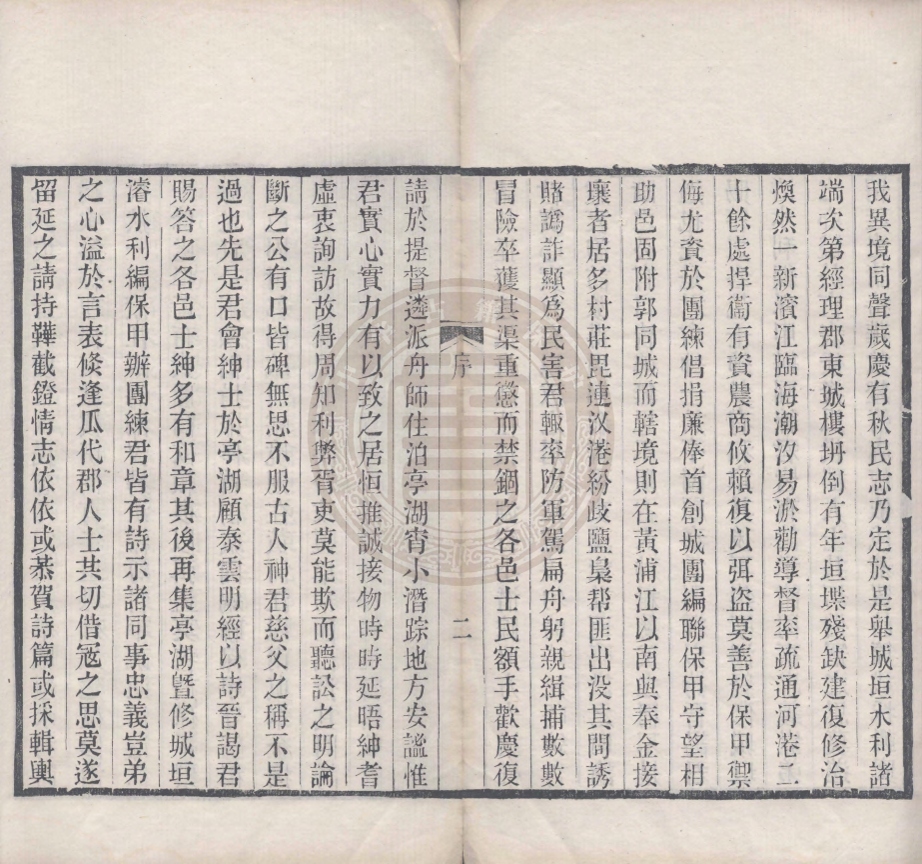 我異境同聲歲慶有秋民志乃定於是舉城垣水利諸
端次第經理郡東城樓坍倒有年垣堞殘缺建復修治
煥然一新濱江臨海潮汐易淤勸導督率疏通河港二
十餘處捍衞有資農商攸賴復以弭盗莫善於保甲禦
侮尤資於團練倡捐廉俸首創城團編聯保甲守望相
助邑固附郭同城而轄境則在黃浦江以南與奉金接
壤者居多村莊毘連汊港紛歧鹽梟帮匪出没其間誘
賭譌詐顯為民害君輙率防軍駕扁舟躬親緝捕數數
冒險卒獲其渠重懲而禁錮之各邑士民額手歡慶復
序
二
請於提督遴派舟師住泊亭湖宵小潛踪地方安謐惟
君實心實力有以致之居恒推誠接物時時延晤紳耆
虛衷詢訪故得周知利弊胥吏莫能欺而聽訟之明論
斷之公有口皆碑無思不服古人神君慈父之稱不是
過也先是君會紳士於亭湖顧泰雲明經以詩晉謁君
賜答之各邑士紳多有和章其後再集亭湖曁修城垣
濬水利編保甲辦團練君皆有詩示諸同事忠義豈弟
之心溢於言表倏逢瓜代郡人士共切借寇之思莫遂
留延之請持鞾截鐙情志依依或恭賀詩篇或採輯輿